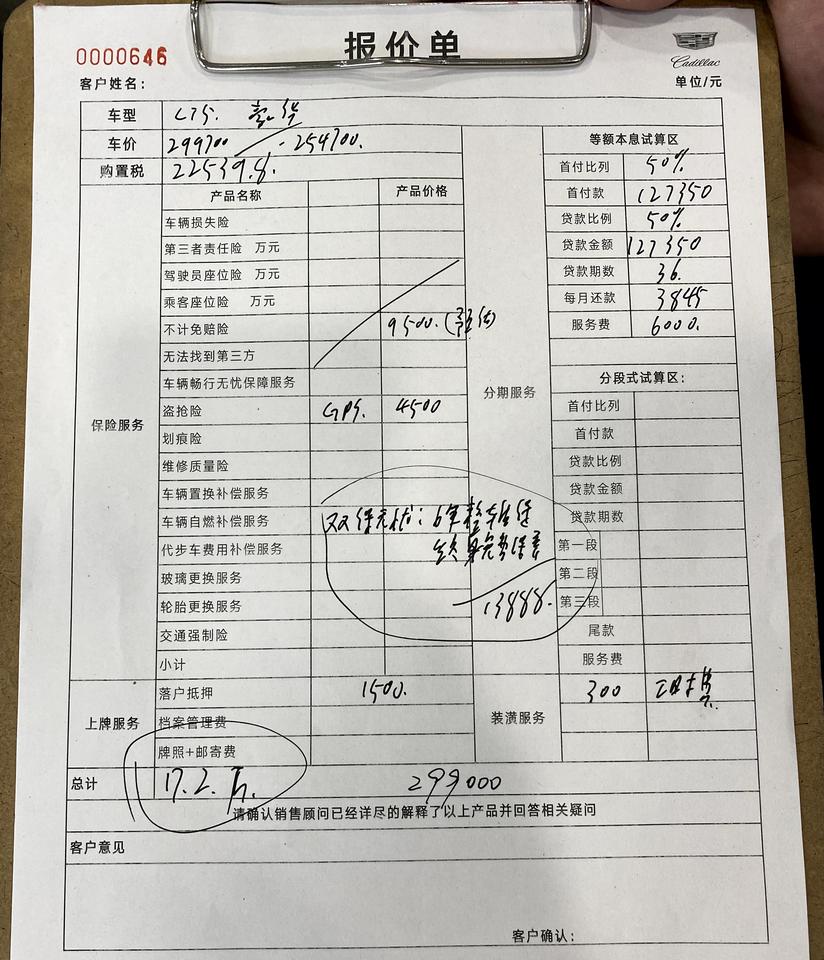 0000646
报价单
Cadillac
客户姓名：
单位/元
车型 CT5. 豪华
车价 299700 - 254700.
等额本息试算区
购置税 22539.8.
首付比列 50%
产品名称 产品价格
首付款 127350
车辆损失险
贷款比例 50%
第三者责任险 万元
贷款金额 127350
驾驶员座位险 万元
贷款期数 36.
乘客座位险 万元
每月还款 3845
不计免赔险 9500.(预估)
服务费 6000.
无法找到第三方
车辆畅行无忧保障服务
分期服务
分段式试算区：
保险服务
盗抢险 GPS. 4500
首付比列
划痕险
首付款
维修质量险
贷款比例
车辆置换补偿服务
贷款金额
车辆自燃补偿服务
双保无忧：6年整车延保
贷款期数
代步车费用补偿服务
终身免费保养
第一段
玻璃更换服务
第二段
轮胎更换服务
13888.
第三段
交通强制险
尾款
小计
服务费
上牌服务
落户抵押 1500.
装潢服务
300
档案管理费
牌照+邮寄费
总计 17.2.万. 299000
请确认销售顾问已经详尽的解释了以上产品并回答相关疑问
客户意见
客户确认：